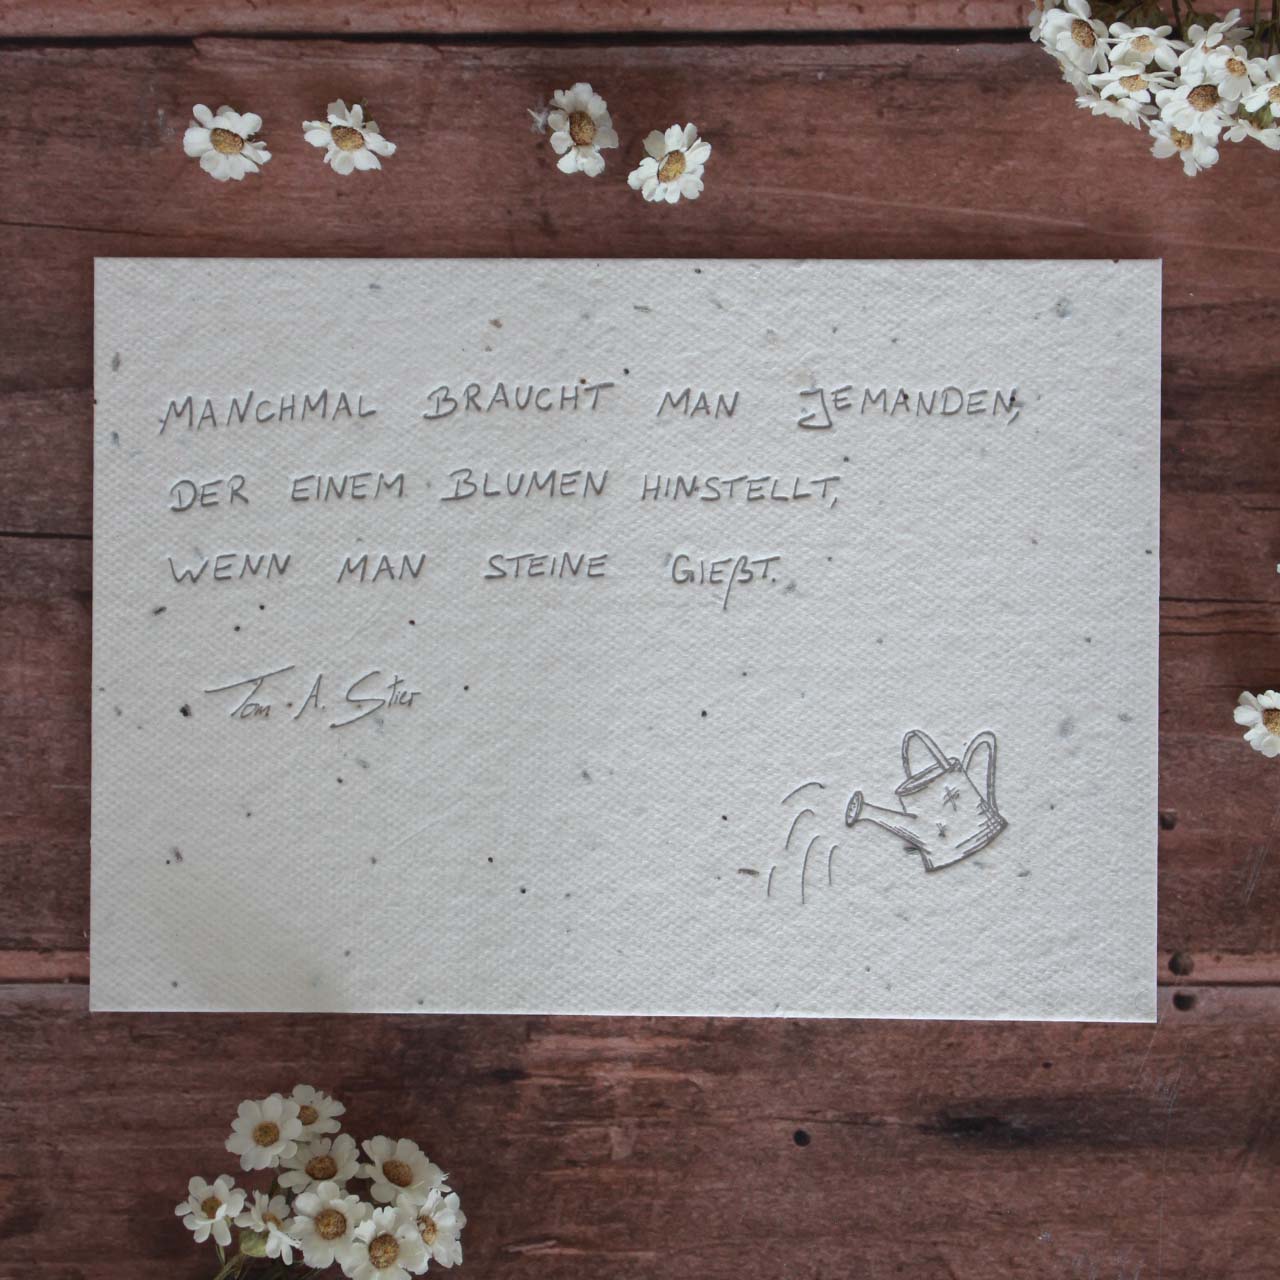 MANCHMAL BRAUCHT MAN JEMANDEN,
DER EINEM BLUMEN HINSTELLT,
WENN MAN STEINE GIEßT.
Tom A. Stier